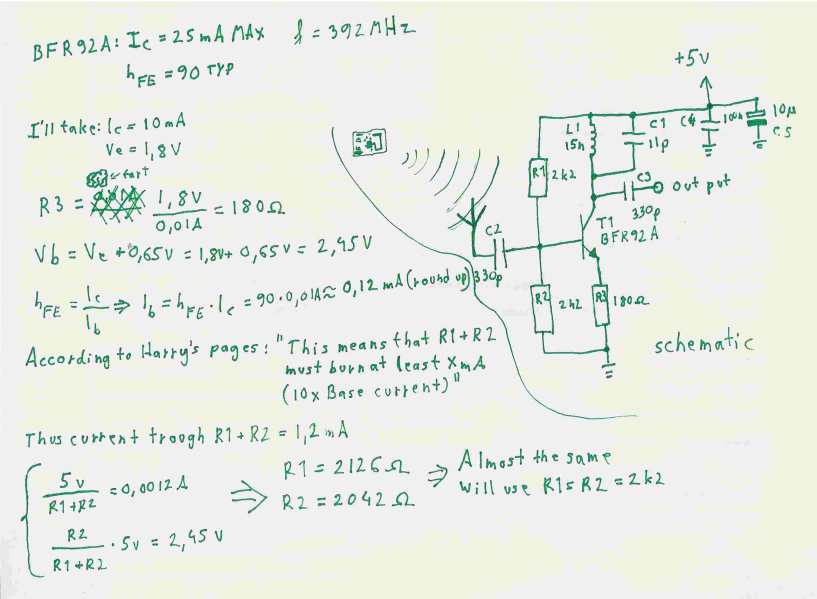 BFR92A: Ic = 25mA MAX f = 392MHz
hFE = 90 TYP
I'll take: Ic = 10mA
Ve = 1,8V
R3 = 1,8V / 0,01A = 180Ω
Vb = Ve + 0,65V = 1,8V + 0,65V = 2,45V
hFE = Ic / Ib ⇒ Ib = hFE · Ic = 90 · 0,01A ≈ 0,12 mA (round up)
According to Harry's pages: "This means that R1+R2
must burn at least XmA
(10x Base current)"
Thus current trough R1+R2 = 1,2mA
5v / R1+R2 = 0,0012A
R2 / R1+R2 · 5v = 2,45v
⇒ R1 = 2126Ω
R2 = 2042Ω
⇒ Almost the same
will use R1=R2=2k2
+5v
L1
15n
C1
11p
C4
100n
10µ
C5
R1
2k2
C3
330p
Output
T1
BFR92A
C2
330p
R2
2k2
R3
180Ω
schematic